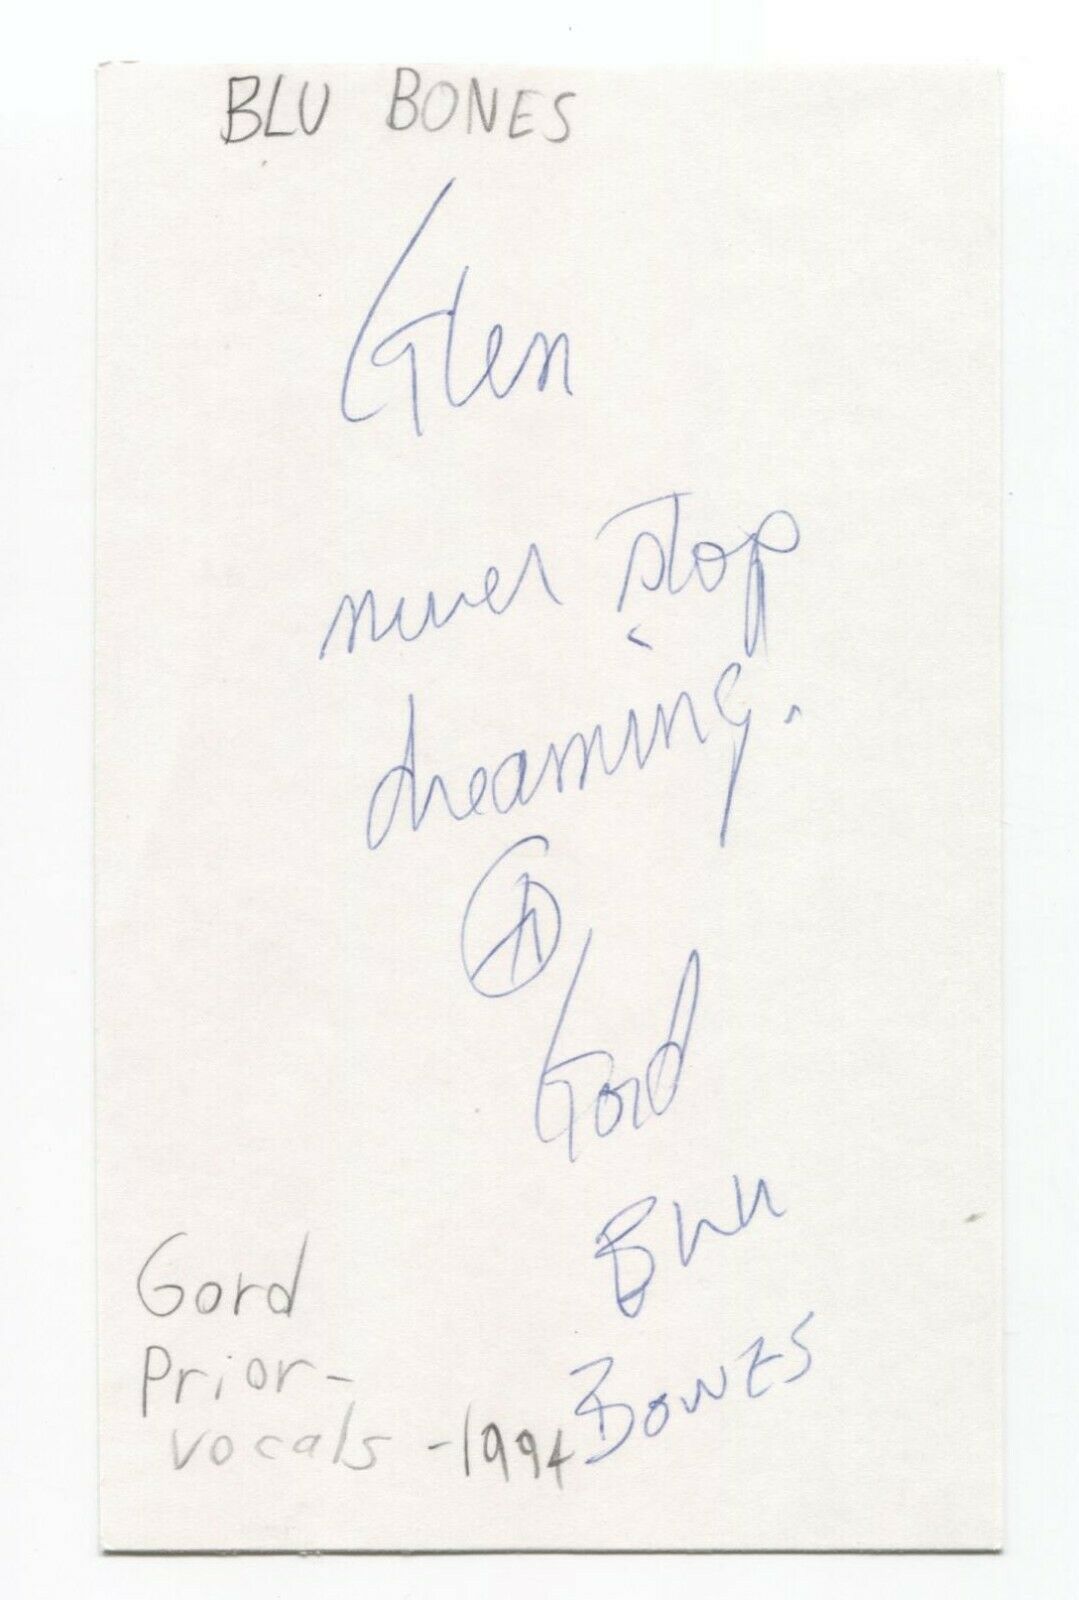 BLU BONES
Glen
never stop
dreaming.
Gord
Blu
BONES
Gord
Prior-
vocals -1994